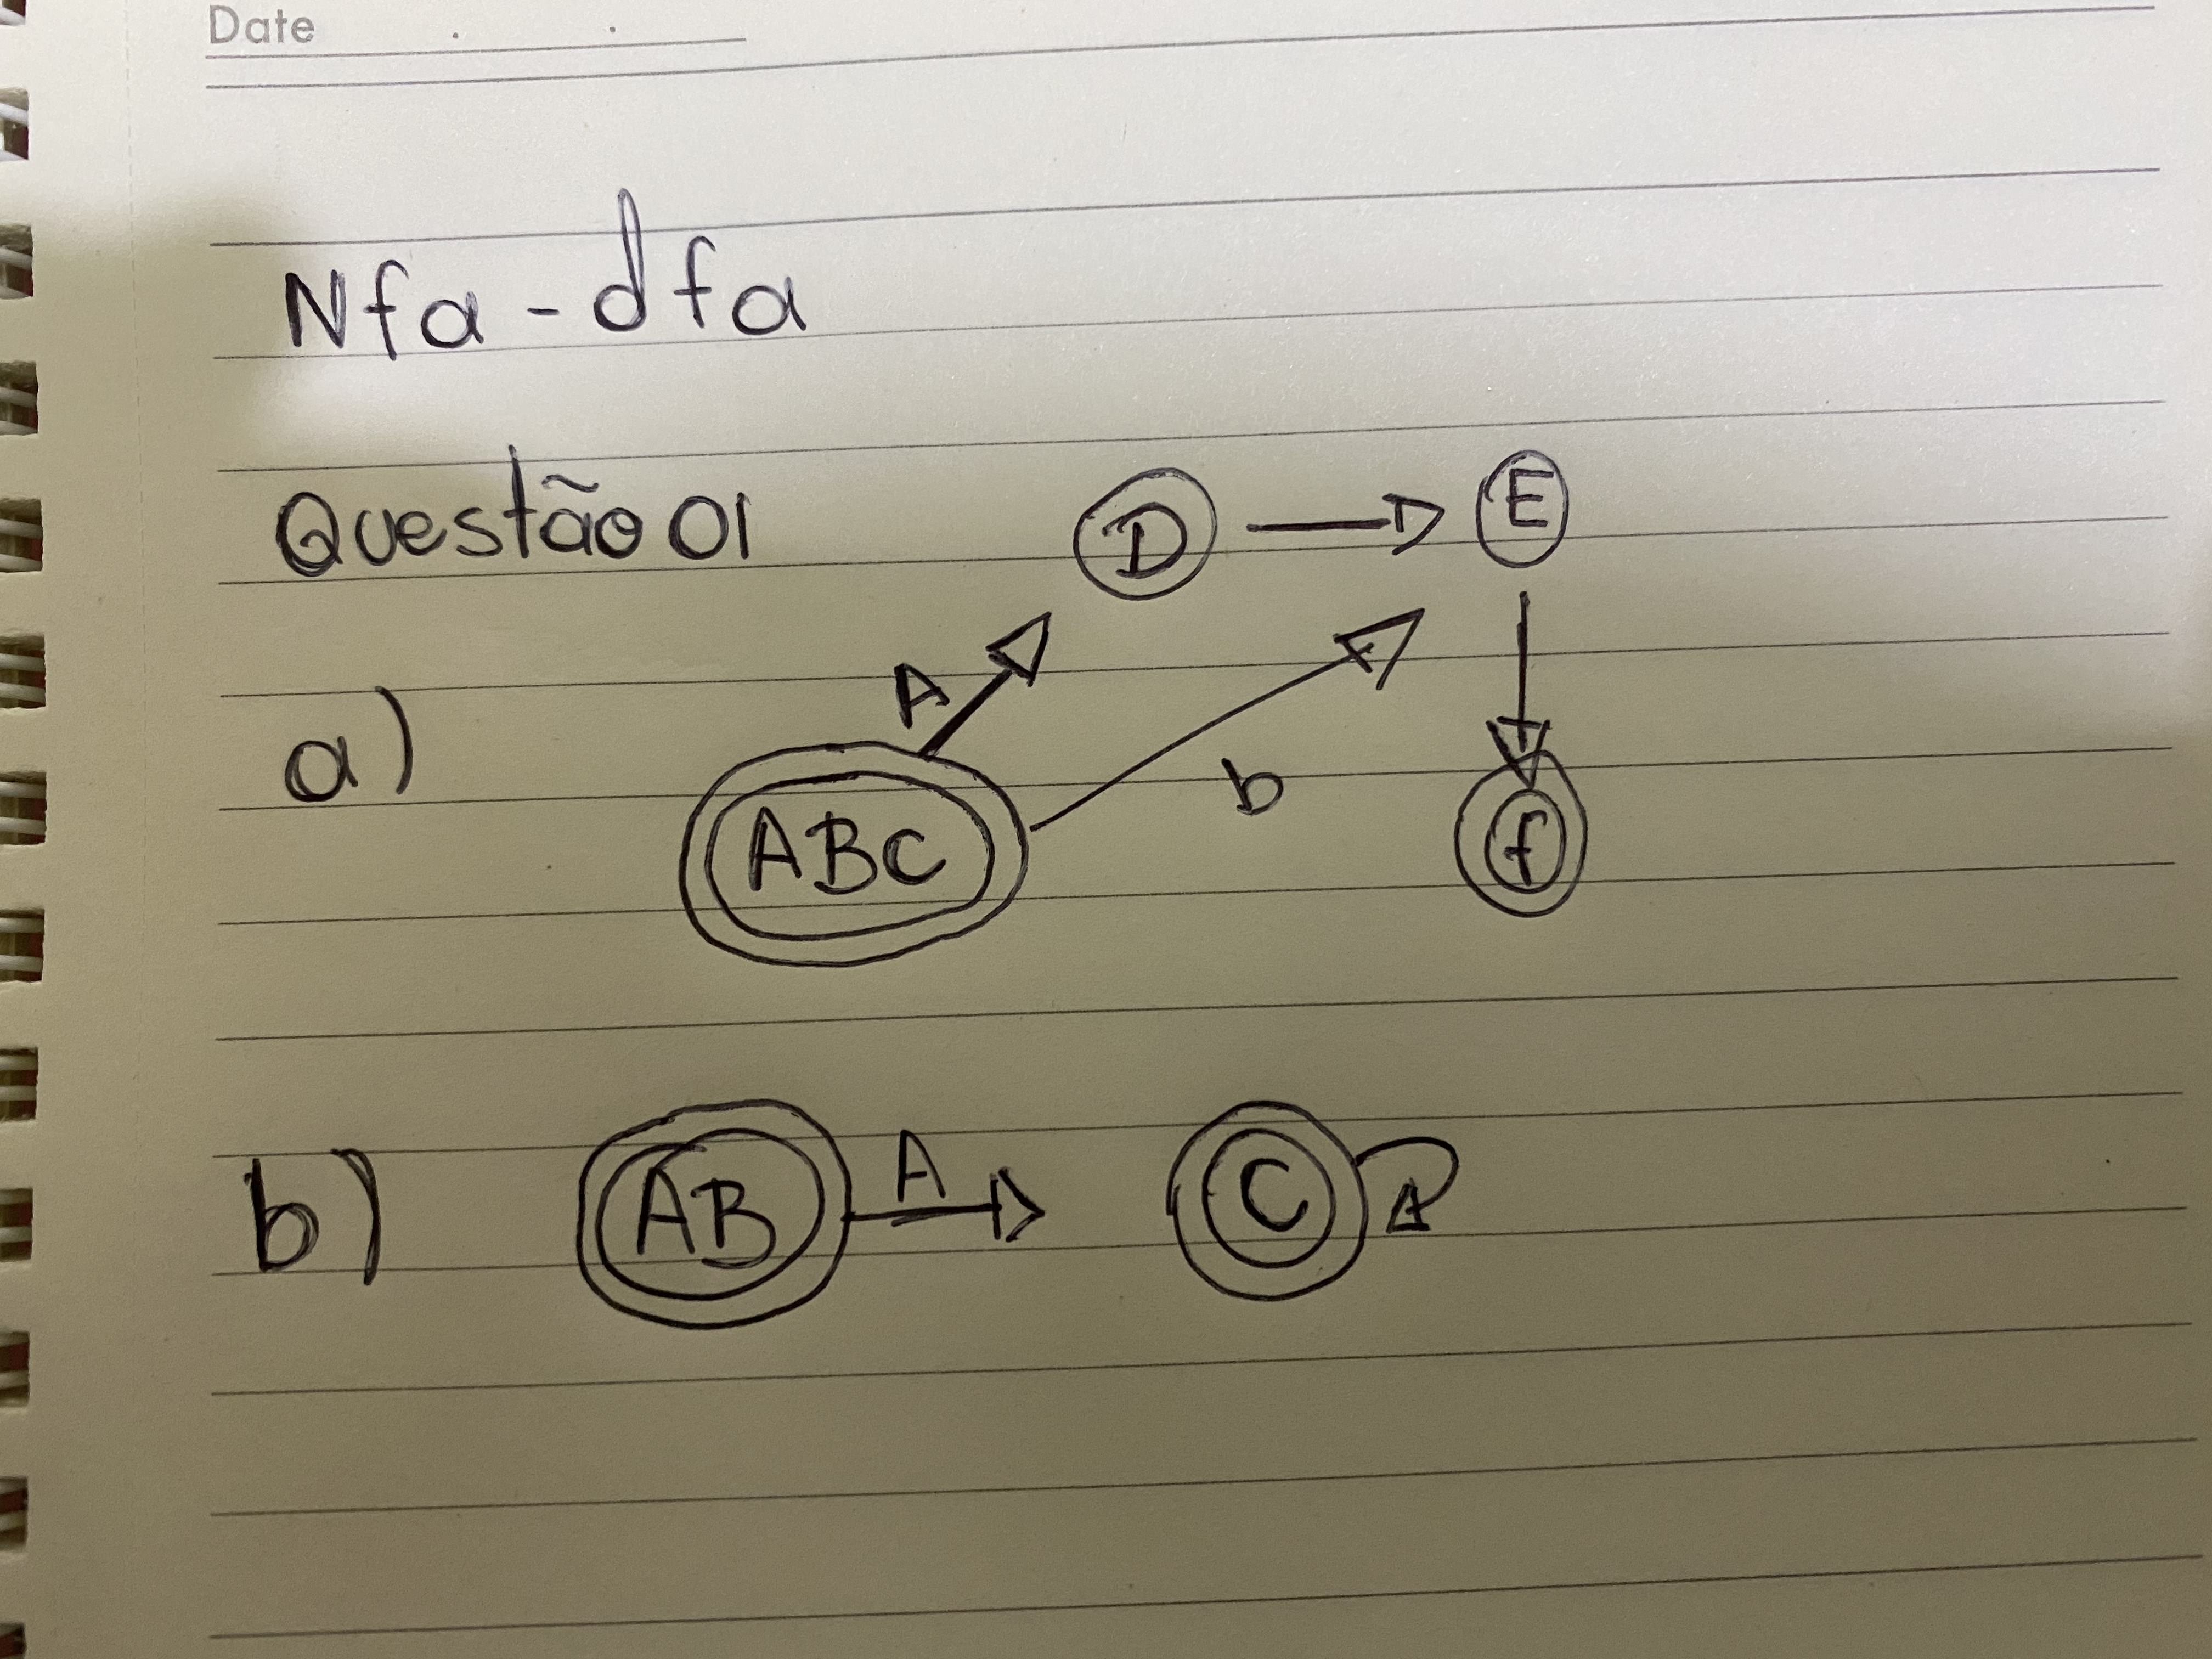 Date
Nfa - dfa
Questão 01
D E
A
a)
b
ABC f
b) AB A C